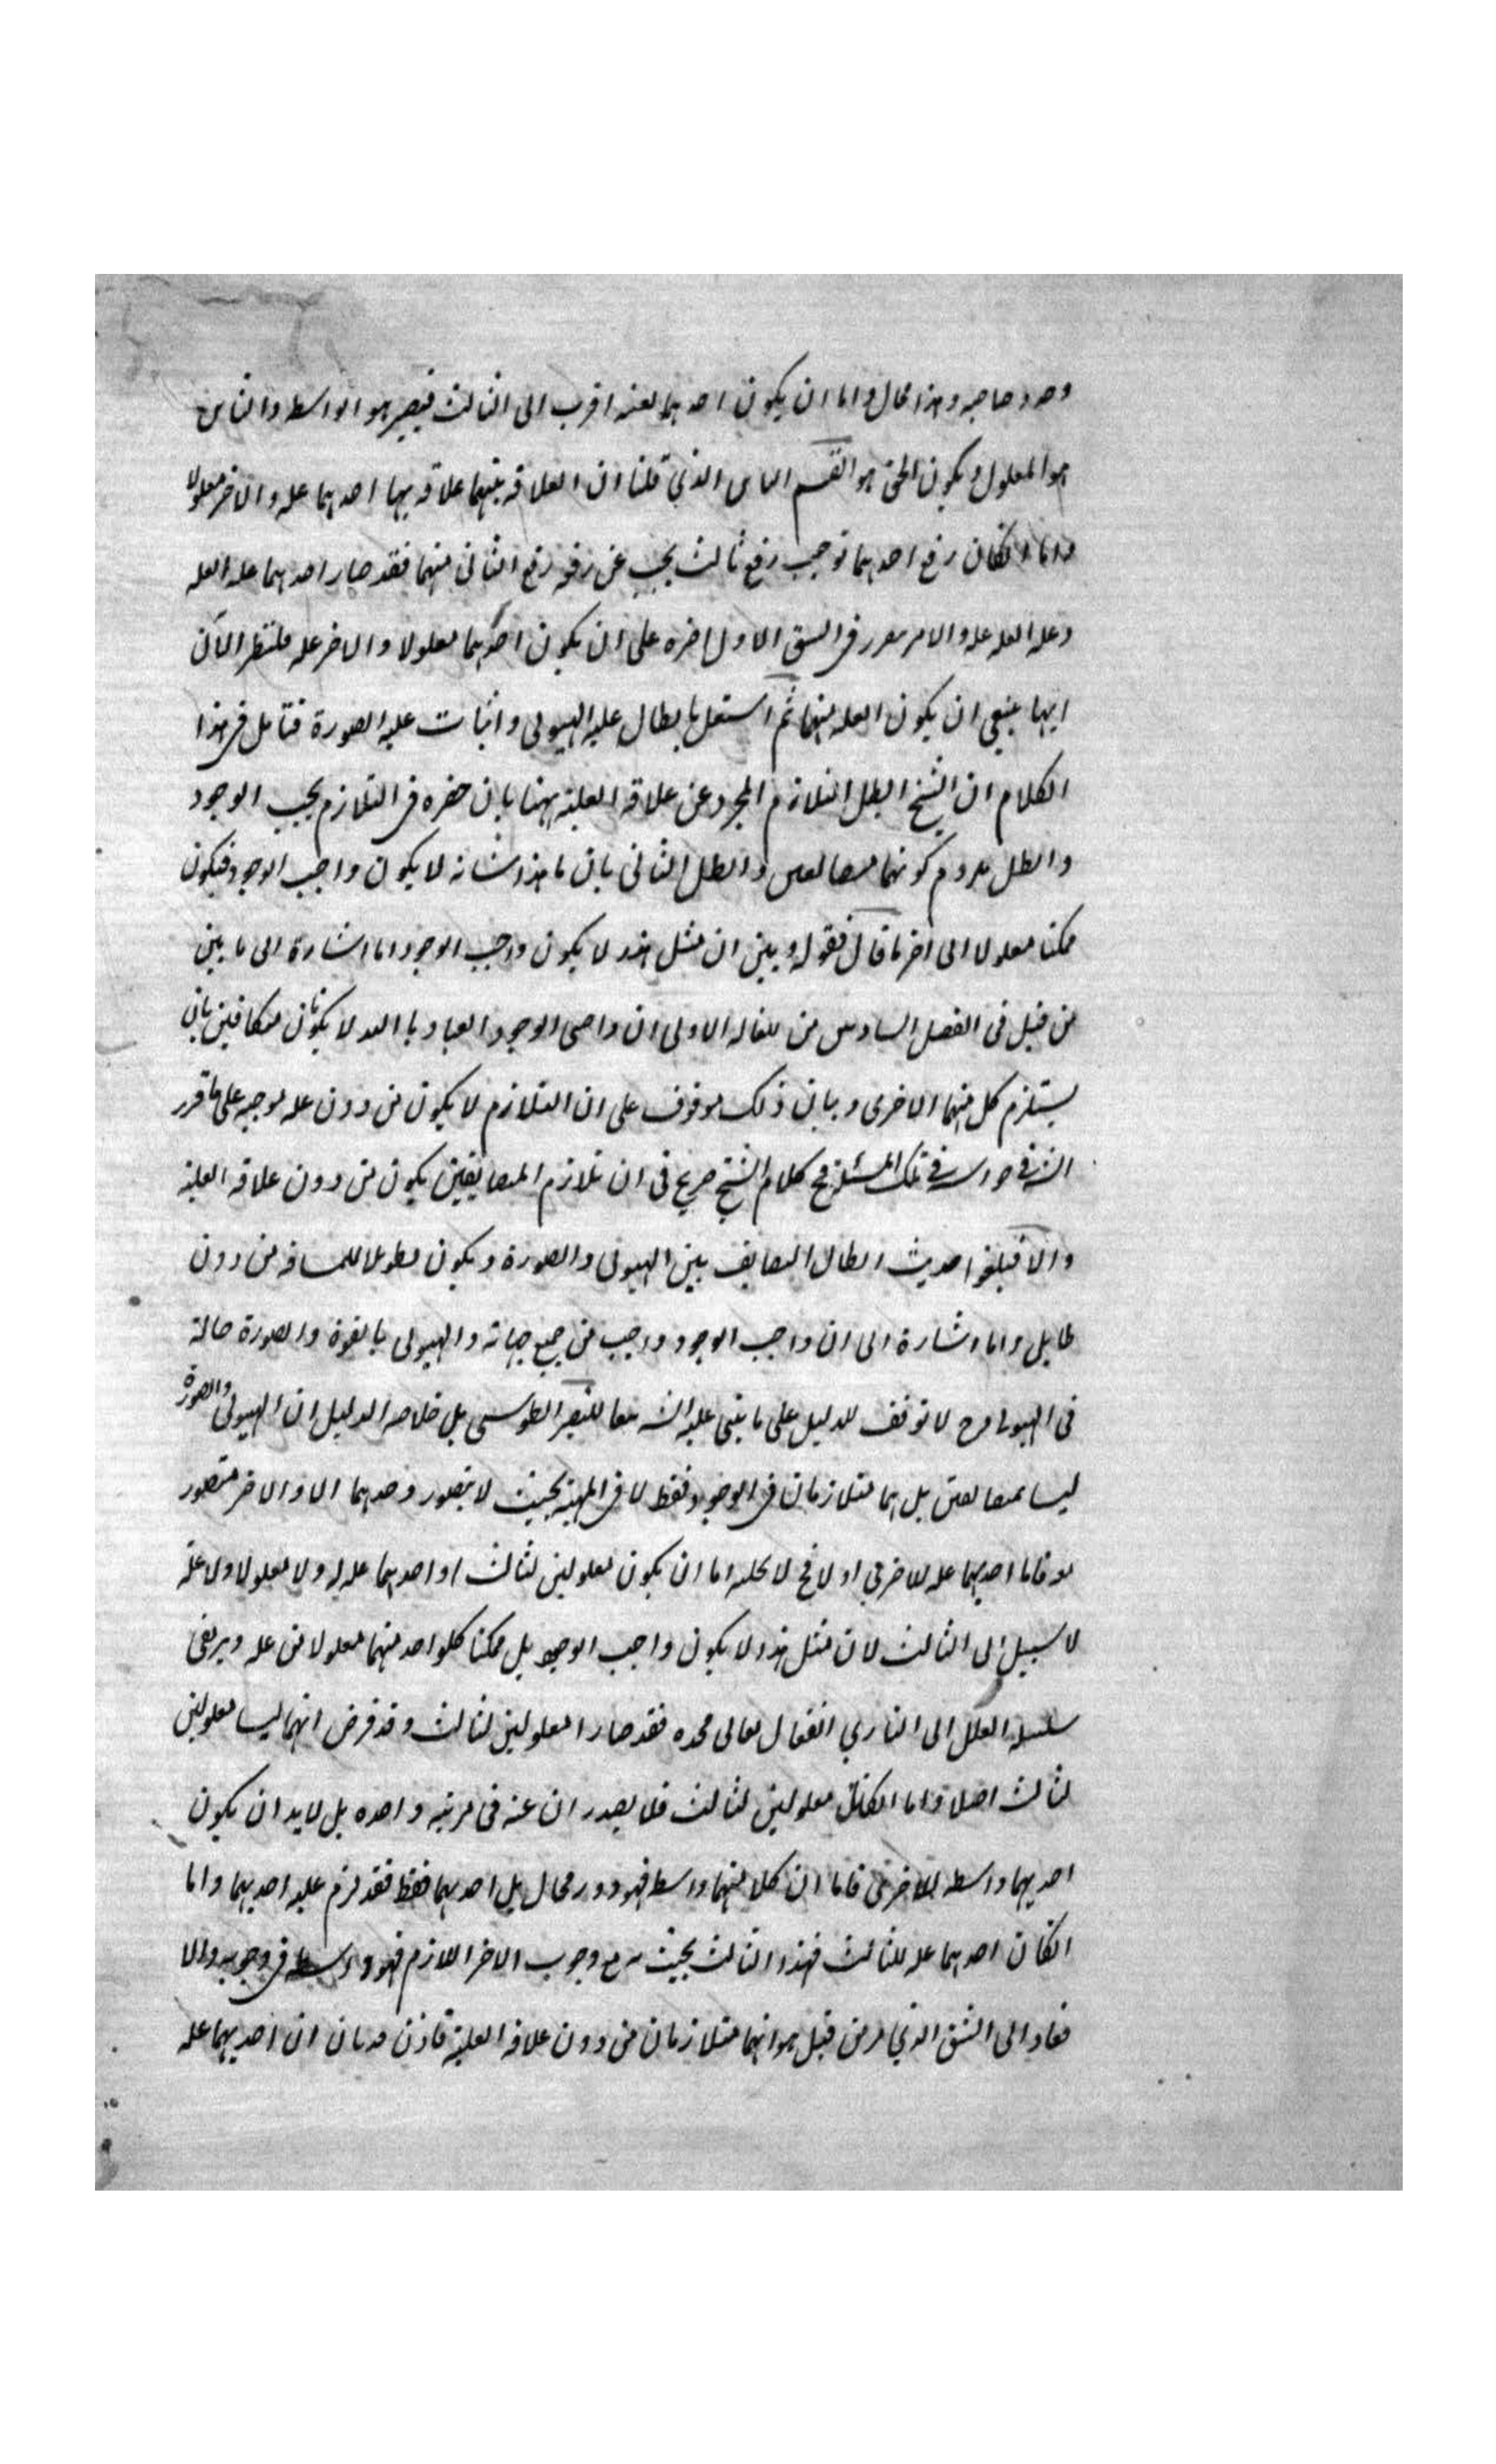 وجود صاحبه وهذا محال واما ان يكون احدهما بعينه اقرب الى الثالث فيصير هو الواسطه والثانى
هو المعلول ويكون الحق هو القسم الذي قلنا ان العلاقه بينهما علاقه بها احدهما عله والاخر معلولا
واما ان كان رفع احدهما توجب رفع ثالث يجب عن رفعه رفع الثانى منهما فقد صار احدهما عله العله
وعله العله عله والامر فى الشق الاول اخره على ان يكون احدهما معلولا والاخر عله فلننظر الآن
ايهما ينبغي ان يكون العله منهما ثم اشتغل بابطال عليه الهيولى واثبات عليه الصورة فتامل فى هذا
الكلام ان الشيخ ابطل التلازم المجرد عن علاقه العلية ههنا بان حصره فى التلازم بحسب الوجود
وابطل بلزوم كونهما وابطل الثانى بان ما هذا شانه لا يكون واجب الوجود فيكون
ممكنا معلولا الى اخر ما قال فقوله وبين ان مثل هذا لا يكون واجب الوجود اما اشارة الى ما بين
من قبل فى الفصل السادس من المقاله الاولى ان واجبى الوجود لا يكونان متكافيين بان
يستلزم كل منهما الاخرى وبيان ذلك موقوف على ان التلازم لا يكون من دون عله موجبه على ما قرر
فى تلك المسئلة فح كلام الشيخ صريح فى ان تلازم المتضايفين يكون من دون علاقه العلية
والا فيلغوا حديث ابطال التضايف بين الهيولى والصورة ويكون مطولا للمسافه من دون
طايل واما اشارة الى ان واجب الوجود واجب من جميع جهاته والهيولى بالقوة والصورة حالة
فى الهيولى وح لا توقف للدليل على ما بنى عليه الشه تبعا للنصير الطوسى بل خلاصه الدليل ان الهيولى والصورة
ليسا بمتضايفين بل هما متلازمان فى الوجود فقط لا فى المهية بحيث لا يتصور وجدهما الا والاخر متصور
فاما احديهما عله للاخرى او لا فح لا يخلو اما ان يكون معلولين لثالث او احدهما عله له ولا معلولا ولا علة
لا سبيل الى الثالث لان مثل هذا لا يكون واجب الوجود بل ممكنا كلواحد منهما معلولا من عله ويرتقى
سلسله العلل الى البارى الفعال تعالى مجده فقد صارا معلولين لثالث وقد فرض انهما ليسا معلولين
لثالث اصلا واما ان كانا معلولين لثالث فلا يصدران عنه فى مرتبه واحده بل لا بد ان يكون
احديهما واسطه للاخرى فاما ان كلا منهما واسطه فهو دور محال بل احدهما فقط فقد لزم عليه احديهما واما
ان كان احدهما عله للثالث فهذا الثالث بحيث مع وجوب الاخر اللازم فهو واسطه فى وجوبه والا
فعاد الى الشق الذي مر من قبل هو انهما متلازمان من دون علاقه العلية فاذن قد بان ان احديهما عله